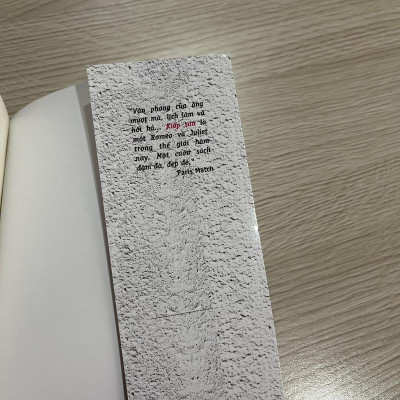 "Văn phong của ông
mượt mà, lịch lãm và
hối hả... Kiếp sau là
một Roméo và Juliet
trong thế giới hôm
nay. Một cuốn sách
đậm đà, đẹp đẽ."
Paris Match